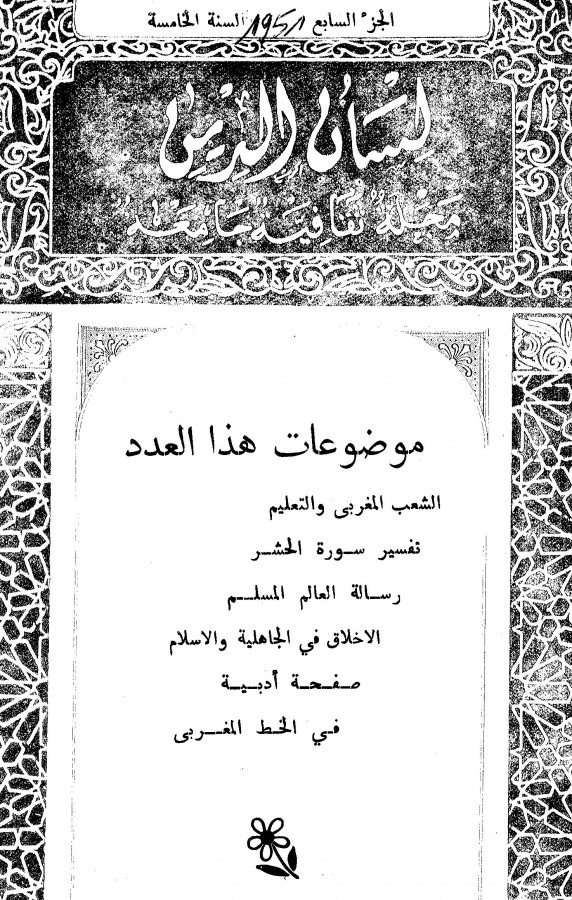 الجزء السابع 1951 السنة الخامسة
لسان الدين
مجلة ثقافية جامعة
موضوعات هذا العدد
الشعب المغربى والتعليم
تفسير سـورة الحشـر
رسـالة العالم المسلـم
الاخلاق في الجاهلية والاسلام
صـفـحـة أدبـيـة
فـي الخـط المغـربى